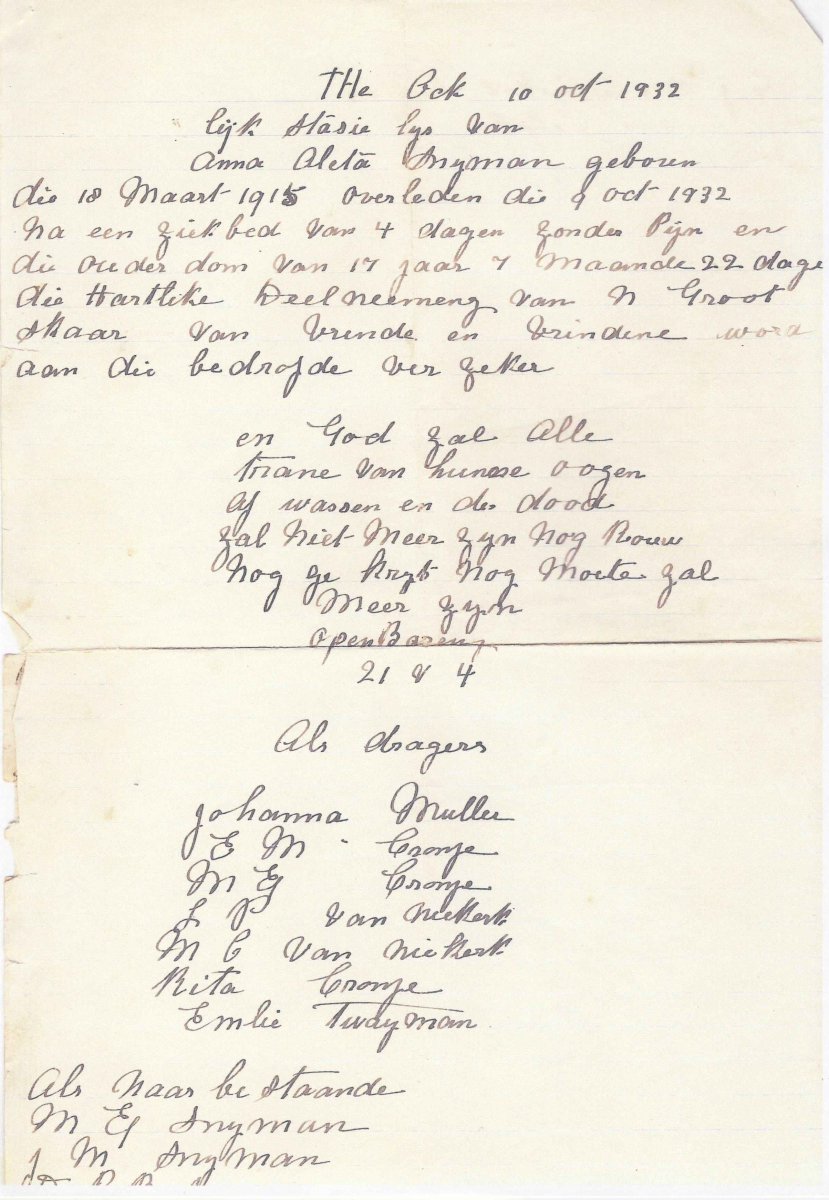 THe Oek 10 oct 1932
lijk stasie lys van
Anna Aleta Snyman geboren
die 18 Maart 1915 overleden die 9 oct 1932
Na een ziekbed van 4 dagen zonder Pijn en
die ouder dom van 17 jaar 7 Maande 22 dage
die Hartlike Deelneemeng van N Groot
skaar van vrinde en vrindene word
aan die bedrofde ver zeker
en God zal Alle
trane van hunne oogen
af wassen en de dood
zal Niet Meer zyn Nog Rouw
Nog ge kryt Nog Moete zal
Meer zyn
openBareng
21 v 4
Als dragers
Johanna Muller
E M Cronje
M E Cronje
L P van Niekerk
M C van Niekerk
Rita Cronje
Emlie Twayman
Als Naar be staande
M E Snyman
J M Snyman